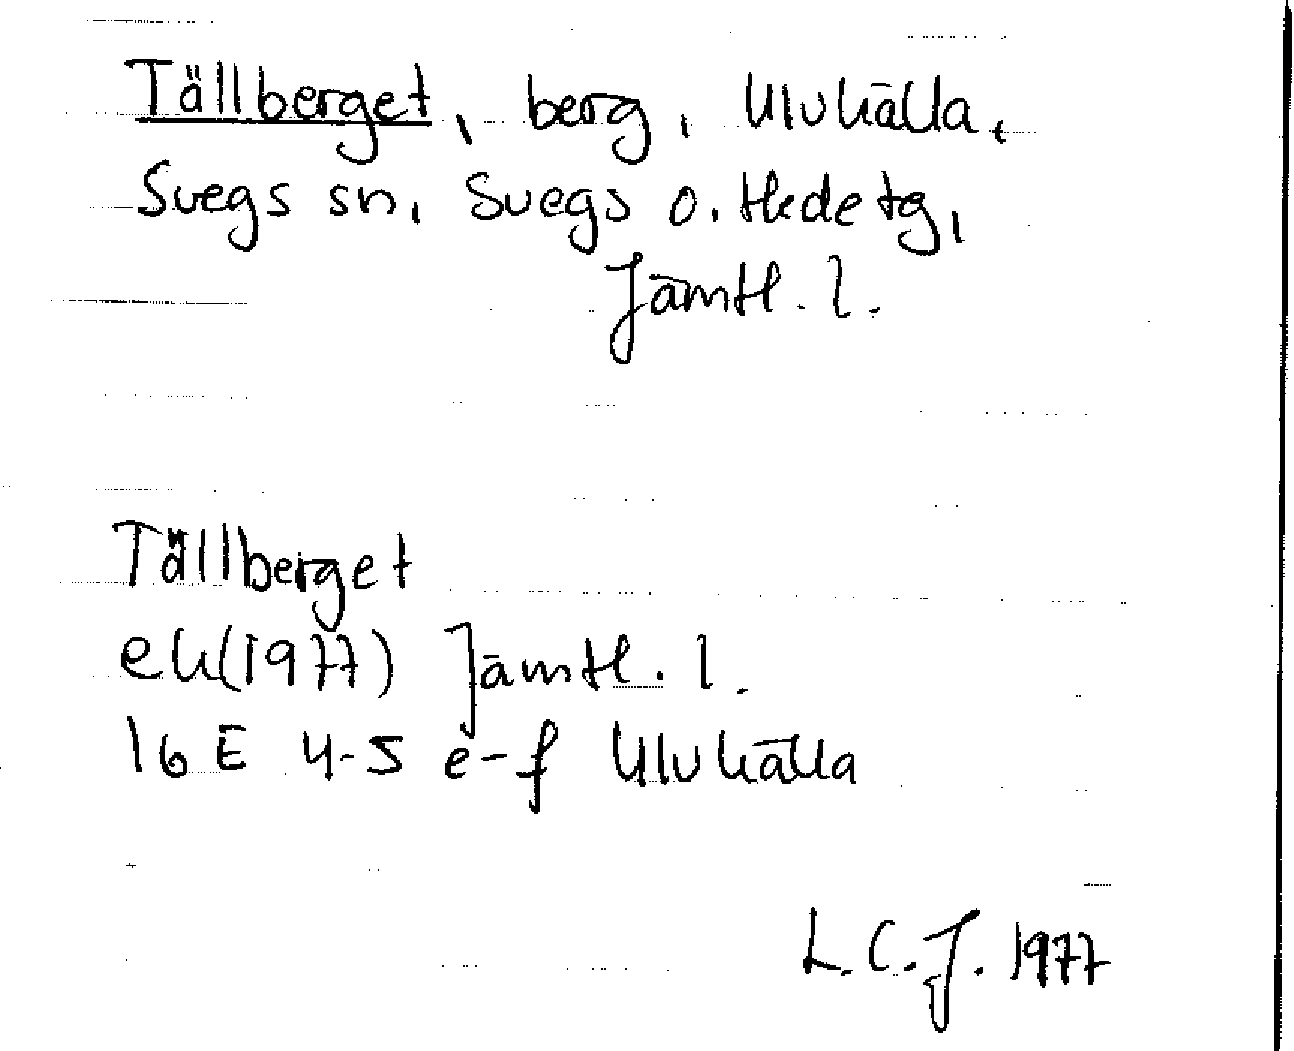 Tällberget, berg, Ulvkälla,
Svegs sn, Svegs o. Hede tg,
Jämtl. l.
Tällberget
ek(1977) Jämtl. l.
16 E 4-5 e-f Ulvkälla
L.C.J. 1977